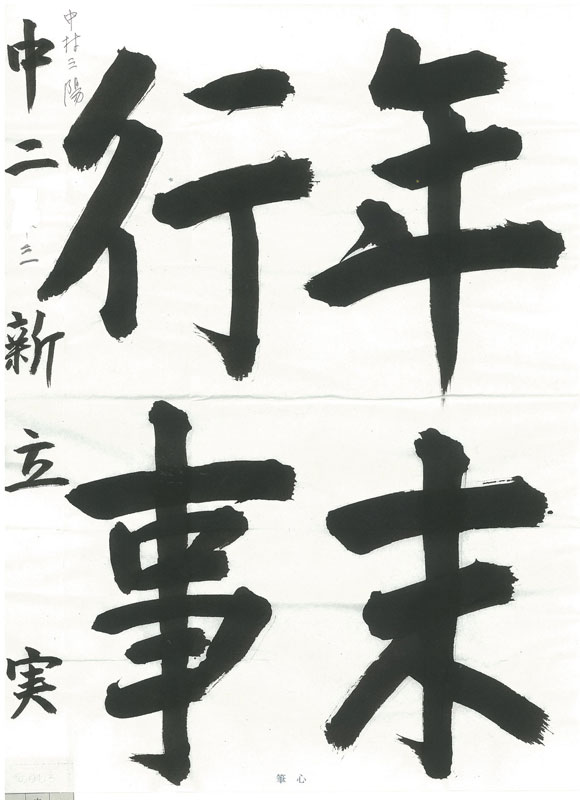 年末
行事
中村三陽
中二 新立 実
筆心